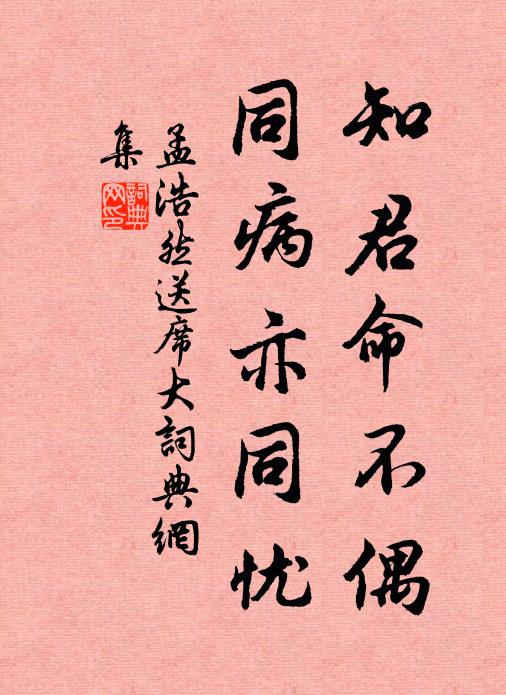 知君命不偶
同病亦同忧
孟浩然送席大詞典網
集
詞典
网印